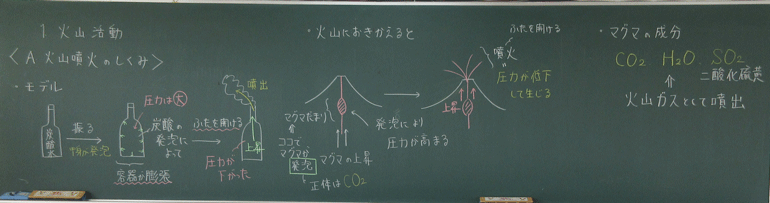 1. 火山活動
<A 火山噴火のしくみ>
・モデル
炭酸水
振る
圧力は大
炭酸の
発泡に
よって
容器が膨張
ふたを開ける
噴出
上昇
圧力が
下がった
・火山におきかえると
マグマだまり
ココで
マグマが
発泡
正体はCO2
マグマの上昇
発泡により
圧力が高まる
ふたを開ける
噴火
圧力が低下
して生じる
上昇
・マグマの成分
CO2 H2O SO2
二酸化硫黄
火山ガスとして噴出